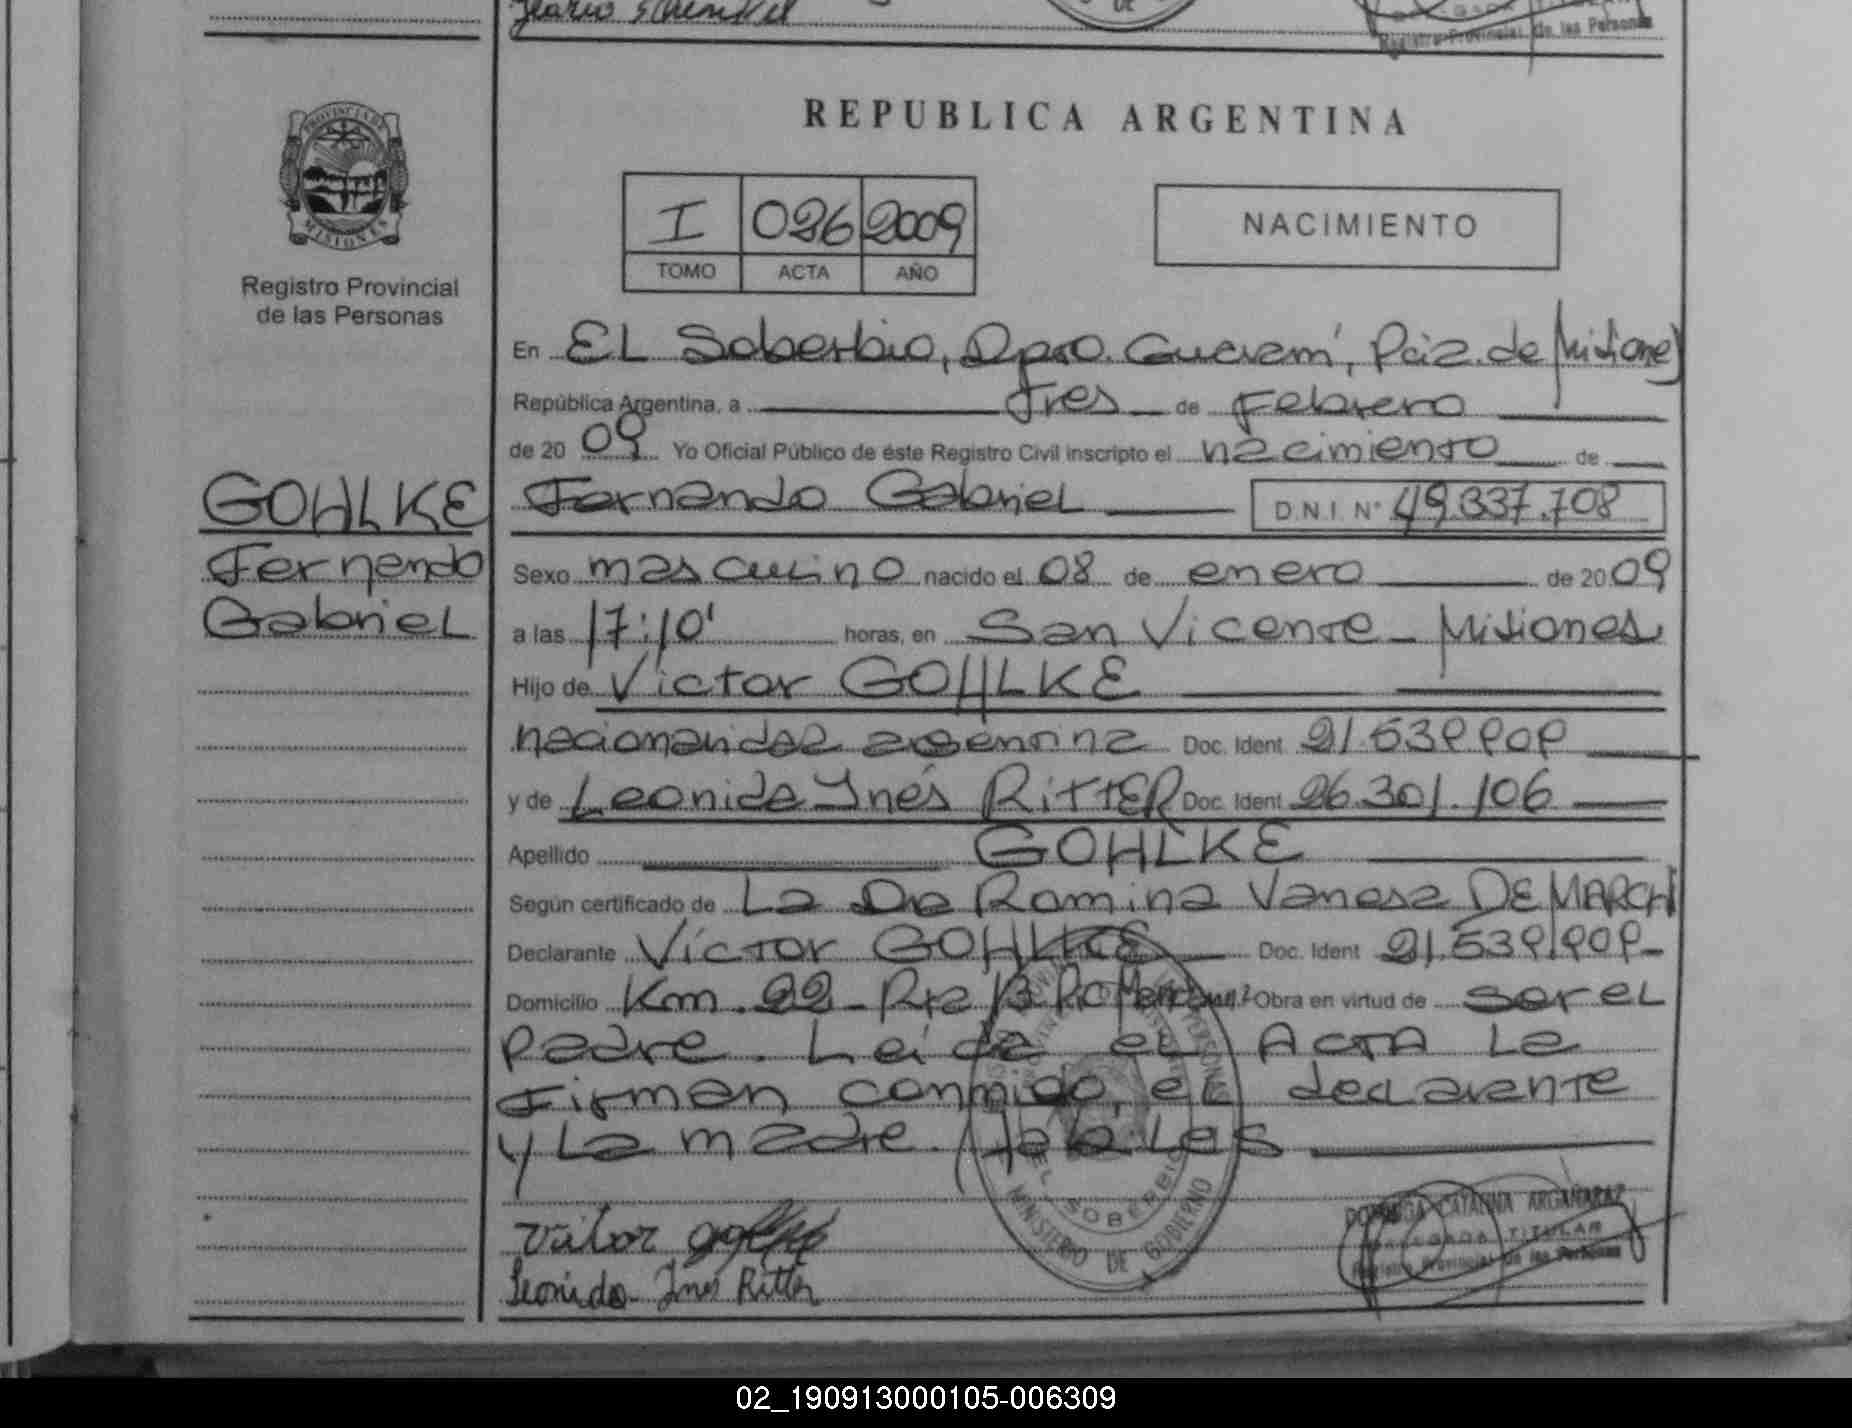 Registro Provincial de las Personas
PROVINCIA DE
MISIONES
Registro Provincial
de las Personas
REPUBLICA ARGENTINA
I 026 2009
TOMO ACTA AÑO
NACIMIENTO
En EL Soberbio, Dpto. Guaraní, Pcia. de Misiones
República Argentina, a Tres de Febrero
de 20 09 Yo Oficial Público de éste Registro Civil inscripto el nacimiento de
GOHLKE
Fernando
Gabriel
Fernando Gabriel D.N.I. N° 49.337.708
Sexo masculino nacido el 08 de enero de 20 09
a las 17:10' horas, en San Vicente - Misiones
Hijo de Victor GOHLKE
argentina Doc. Ident 21.539.909
y de Leonida Inés RITTER Doc. Ident 26.301.106
Apellido GOHLKE
Según certificado de La Dra Romina Vanesa DE MARCHI
Declarante Víctor GOHLKE Doc. Ident 21.539.909
Domicilio Km. 22 - Obra en virtud de ser el
padre. Leída el ACTA La
Firman conmigo, el declarante
y La madre.
EL SOBERBIO
MINISTERIO DE GOBIERNO
CATALINA ARGAÑARAZ
DELEGADA TITULAR
Registro Provincial de las Personas
Leonida Ines Ritter
02_190913000105-006309